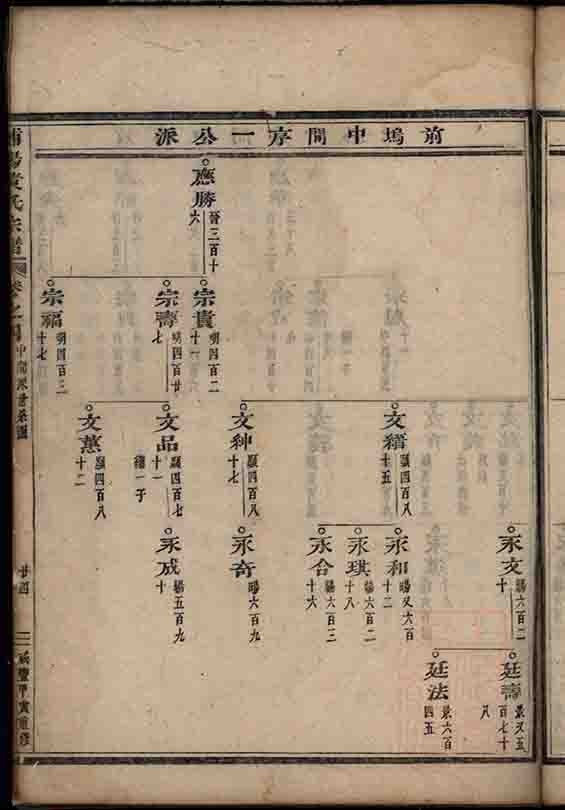 前塢中間房一公派
應勝
晉三百十
六
宗貴
明四百二
十一
宗壽
明四百廿
七
宗福
明四百三
十七
文縉
顯四百八
十五
文种
顯四百八
十七
文品
顯四百七
十一
繼一子
文蕙
顯四百八
十二
永文
暘六百二
十
永和
暘又六百
十二
永琪
暘六百二
十八
永合
暘六百三
十六
永奇
暘六百九
永成
暘五百九
十
廷壽
景又五
百七十
八
廷法
景六百
四五
浦陽黃氏宗譜
卷之
中間派世系圖
廿四
咸豐甲寅重修